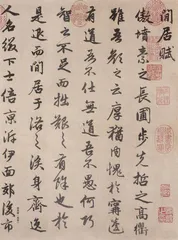 閒居賦
傲墳素之長圃步先哲之高衢
雖吾顏之云厚猶內愧於甯蘧
有道吾不仕無道吾不愚何巧
智之不足而拙艱之有餘也於
是退而閒居于洛之涘身齊逸
人名綴下士倍京泝伊面郊後市